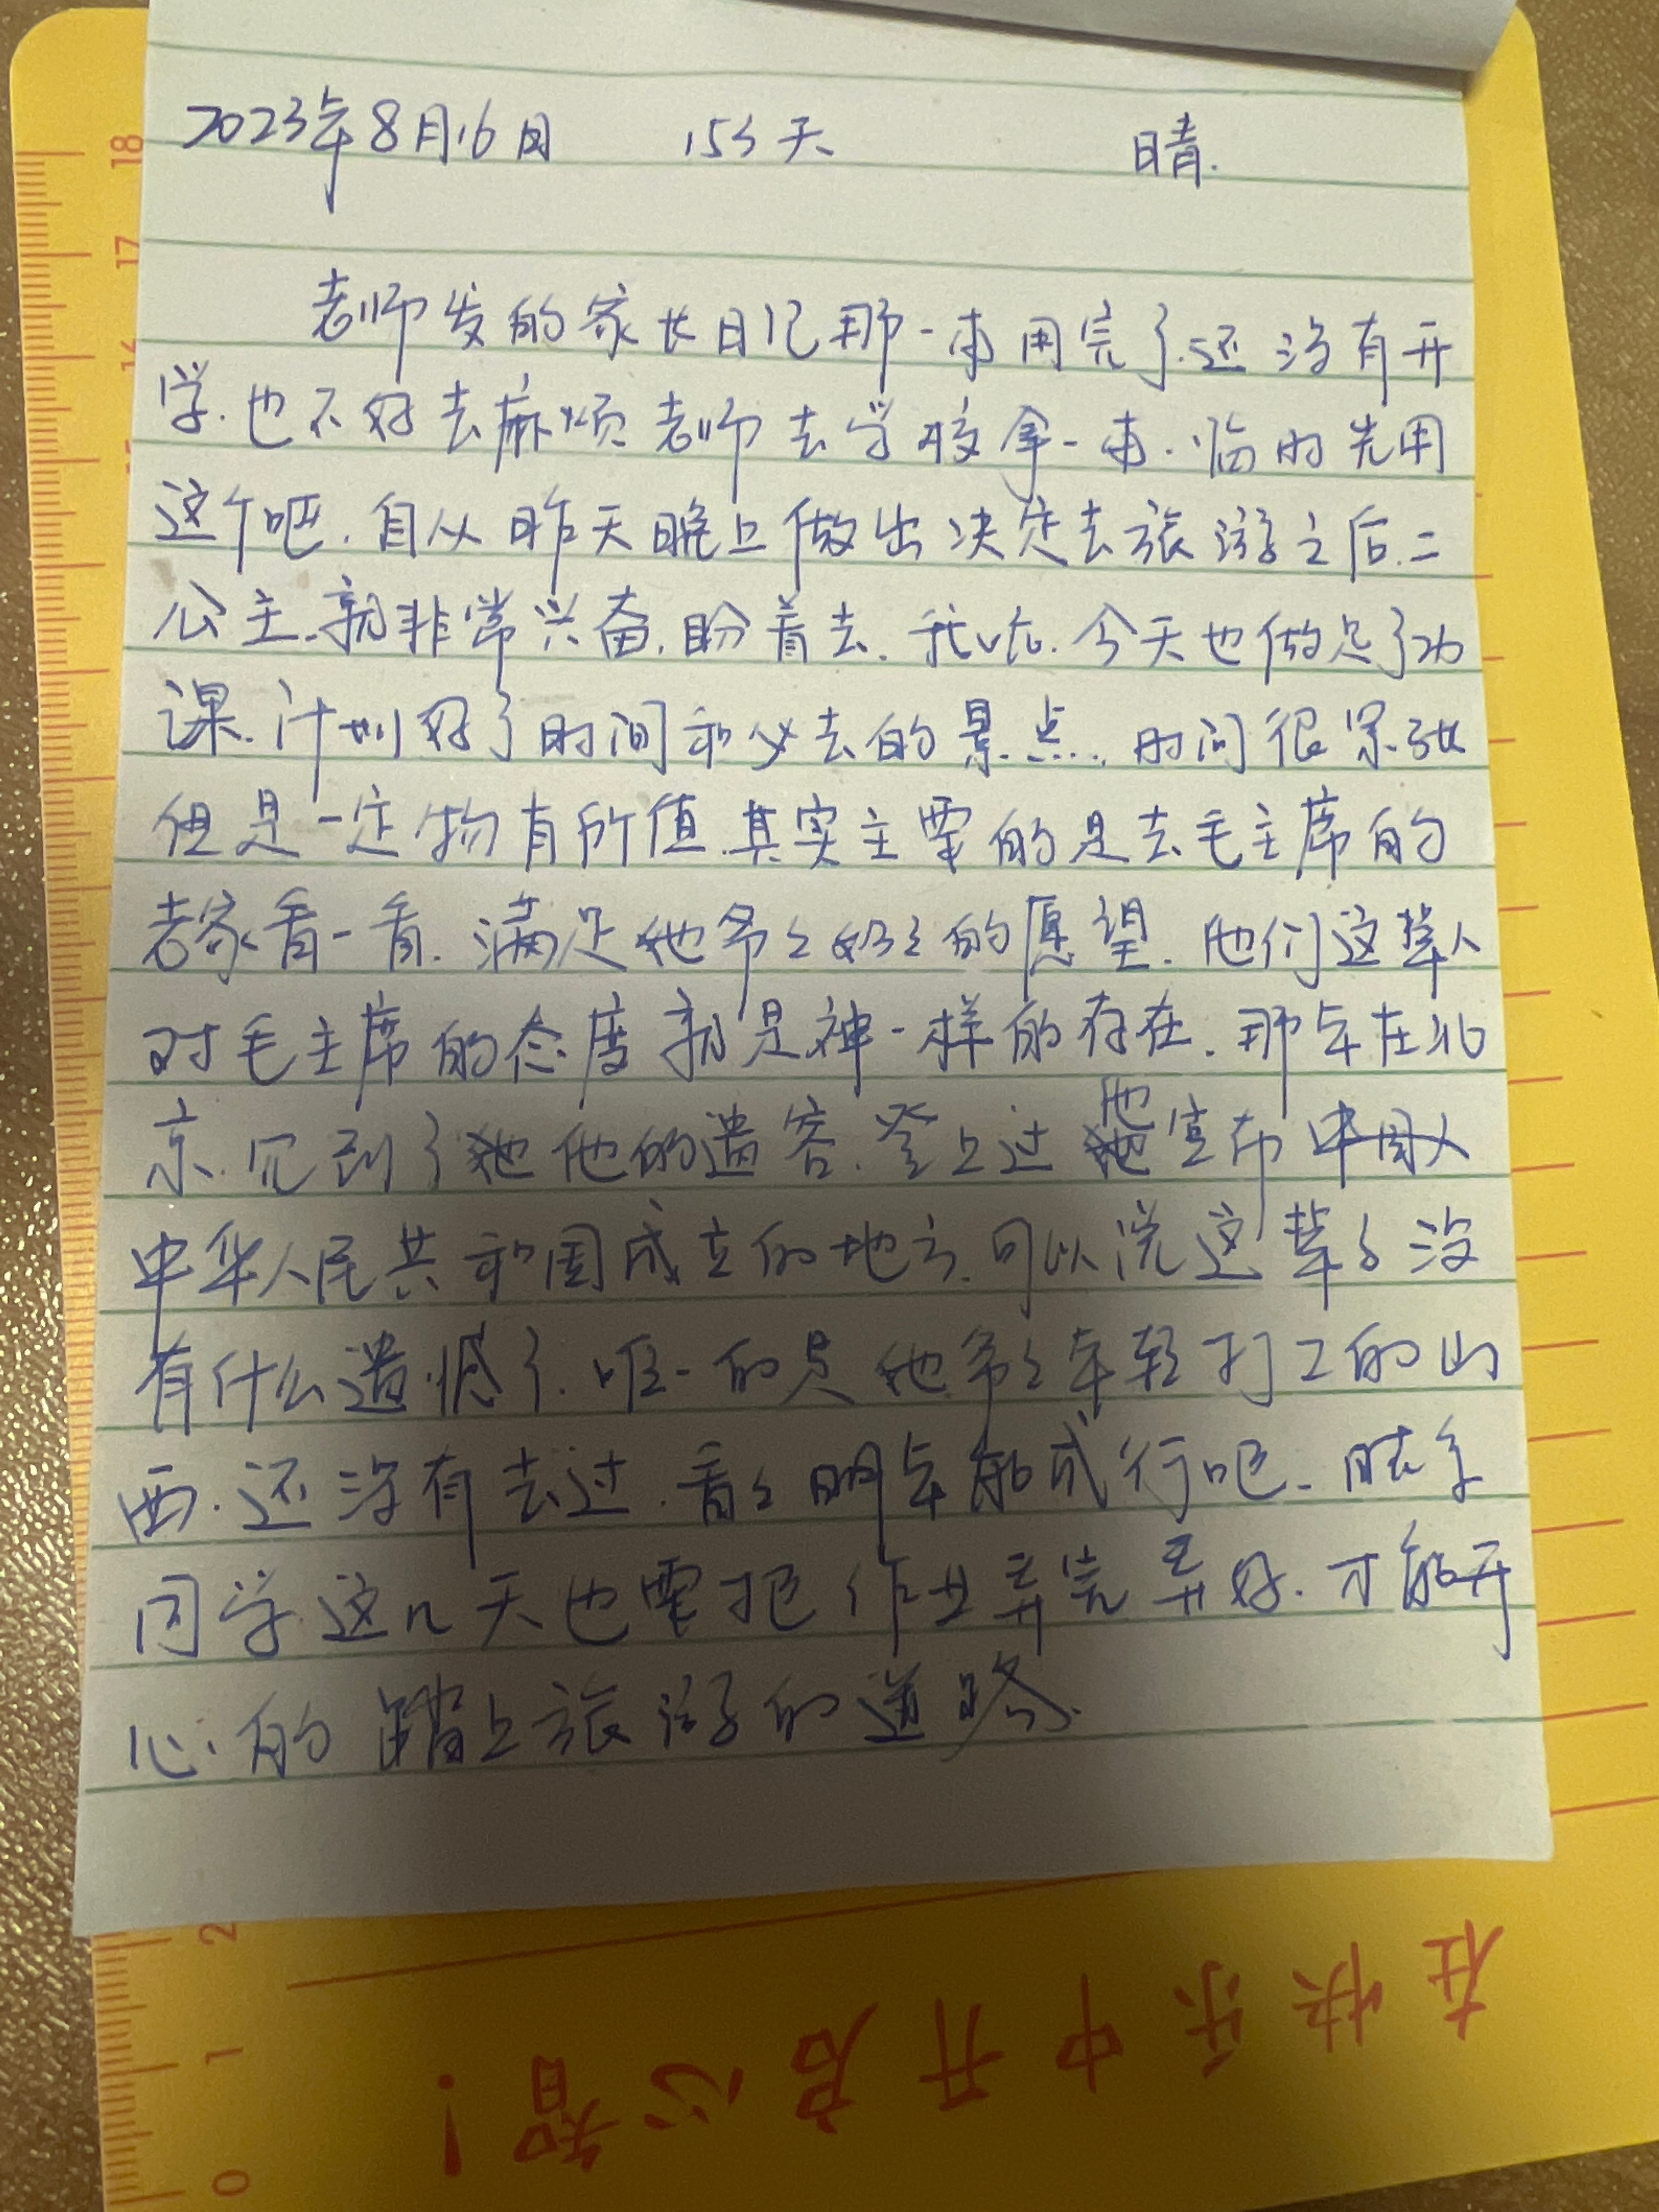 2023年8月16日 153天 晴.
老师发的家长日记那一本用完了.还没有开
学.也不好去麻烦老师去学校拿一本.临时先用
这个吧.自从昨天晚上做出决定去旅游之后.二
公主.就非常兴奋.盼着去.我呢.今天也做足了功
课.计划好了时间和必去的景点.时间很紧张
但是一定物有所值.其实主要的是去毛主席的
老家看一看.满足她爷爷奶奶的愿望.他们这辈人
对毛主席的态度就是神一样的存在.那年在北
京.见到了他的遗容.登上过他宣布
中华人民共和国成立的地方.可以说这辈子没
有什么遗憾了.唯一的是她爷爷年轻打工的山
西.还没有去过.看看明年能成行吧.
同学.这几天也要把作业弄完弄好.才能开
心的踏上旅游的道路.
在快乐中开启心智!
18
17
16
2
1
0